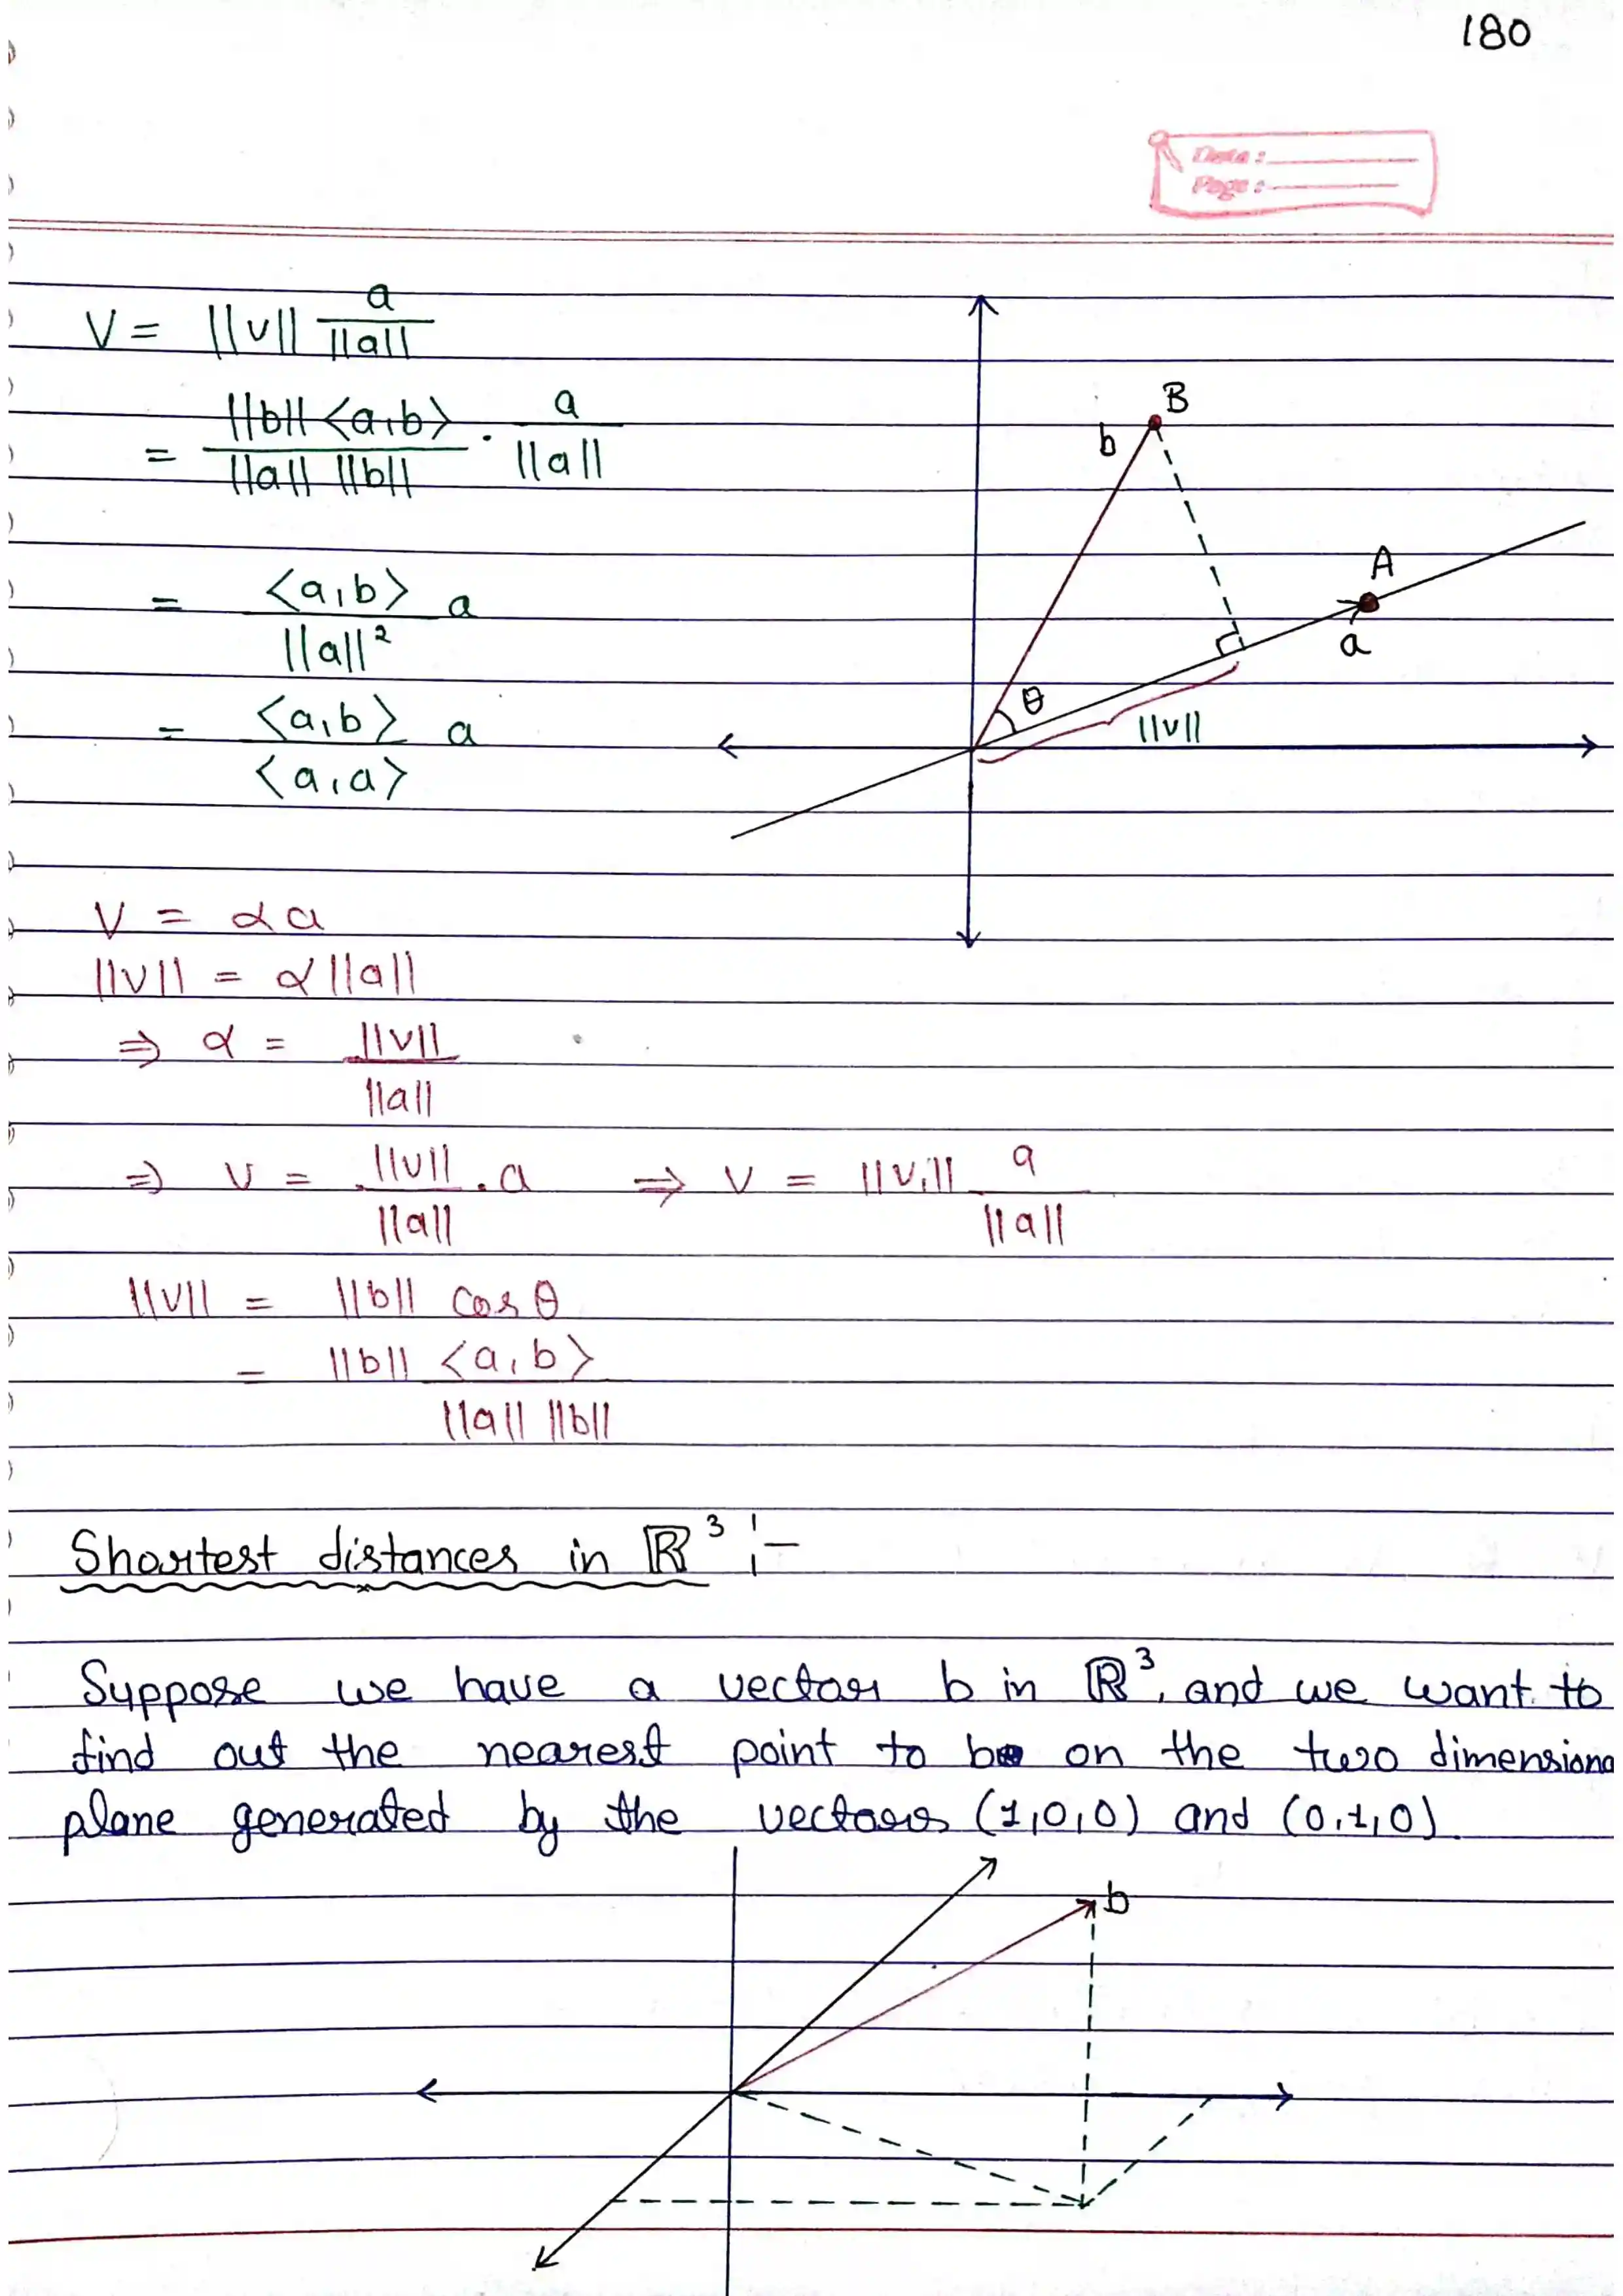 180
Date :
Page :
V = ||v|| a / ||a||
= ||b|| <a,b> / ||a|| ||b|| . a / ||a||
= <a,b> / ||a||² a
= <a,b> / <a,a> a
B
b
A
a
θ
||v||
V = αa
||v|| = α||a||
⇒ α = ||v|| / ||a||
⇒ v = ||v|| / ||a|| . a ⇒ v = ||v|| a / ||a||
||v|| = ||b|| cos θ
= ||b|| <a,b> / ||a|| ||b||
Shortest distances in ℝ³ :-
Suppose we have a vector b in ℝ³, and we want to
find out the nearest point to b on the two dimensiona
plane generated by the vectors (1,0,0) and (0,1,0).
b